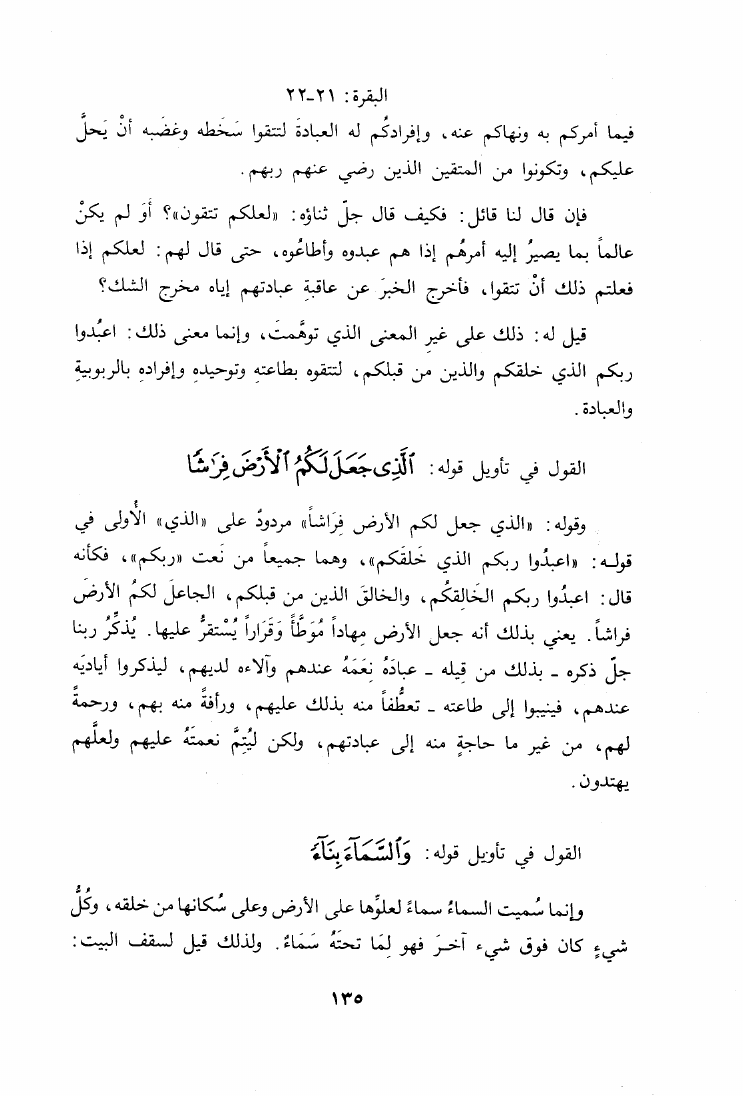 البقرة: ٢١-٢٢
فيما أمركم به ونهاكم عنه، وإفرادكُم له العبادةَ لتتقوا سَخَطه وغضَبه أنْ يَحلَّ
عليكم، وتكونوا من المتقين الذين رضي عنهم ربهم.
فإن قال لنا قائل: فكيف قال جلّ ثناؤه: «لعلكم تتقون»؟ أوَ لم يكنْ
عالماً بما يصيرُ إليه أمرهُم إذا هم عبدوه وأطاعُوه، حتى قال لهم: لعلكم إذا
فعلتم ذلك أنْ تتقوا، فأخرج الخبرَ عن عاقبةِ عبادتهم إياه مخرج الشك؟
قيل له: ذلك على غير المعنى الذي توهَّمتَ، وإنما معنى ذلك: اعبُدوا
ربكم الذي خلقكم والذين من قبلكم، لتتقوه بطاعتهِ وتوحيدهِ وإفرادهِ بالربوبيةِ
والعبادة.
القول في تأويل قوله: ٱلَّذِى جَعَلَ لَكُمُ ٱلْأَرْضَ فِرَٰشًا
وقوله: «الذي جعل لكم الأرض فِرَاشاً» مردودٌ على «الذي» الأُولى في
قولـه: «اعبدُوا ربكم الذي خَلقَكم»، وهما جميعاً من نَعت «ربكم»، فكأنه
قال: اعبدُوا ربكم الخَالِقكُم، والخالقَ الذين من قبلكم، الجاعلَ لكمُ الأرضَ
فراشاً. يعني بذلك أنه جعل الأرض مِهاداً مُوَطَّأً وَقَراراً يُسْتقرُّ عليها. يُذكِّرُ ربنا
جلّ ذكره ـ بذلك من قِيله ـ عبادَهُ نِعَمَهُ عندهم وآلاءه لديهم، ليذكروا أياديَه
عندهم، فينيبوا إلى طاعته ـ تعطُّفاً منه بذلك عليهم، ورأفةً منه بهم، ورحمةً
لهم، من غير ما حاجةٍ منه إلى عبادتهم، ولكن ليُتِمَّ نعمتَهُ عليهم ولعلَّهم
يهتدون.
القول في تأويل قوله: وَٱلسَّمَآءَ بِنَآءً
وإنما سُميت السماءُ سماءً لعلوِّها على الأرض وعلى سُكانها من خلقه، وكُلُّ
شيءٍ كان فوق شيء آخـرَ فهو لِمَا تحتَهُ سَمَاءٌ. ولذلك قيل لسقف البيت:
١٣٥